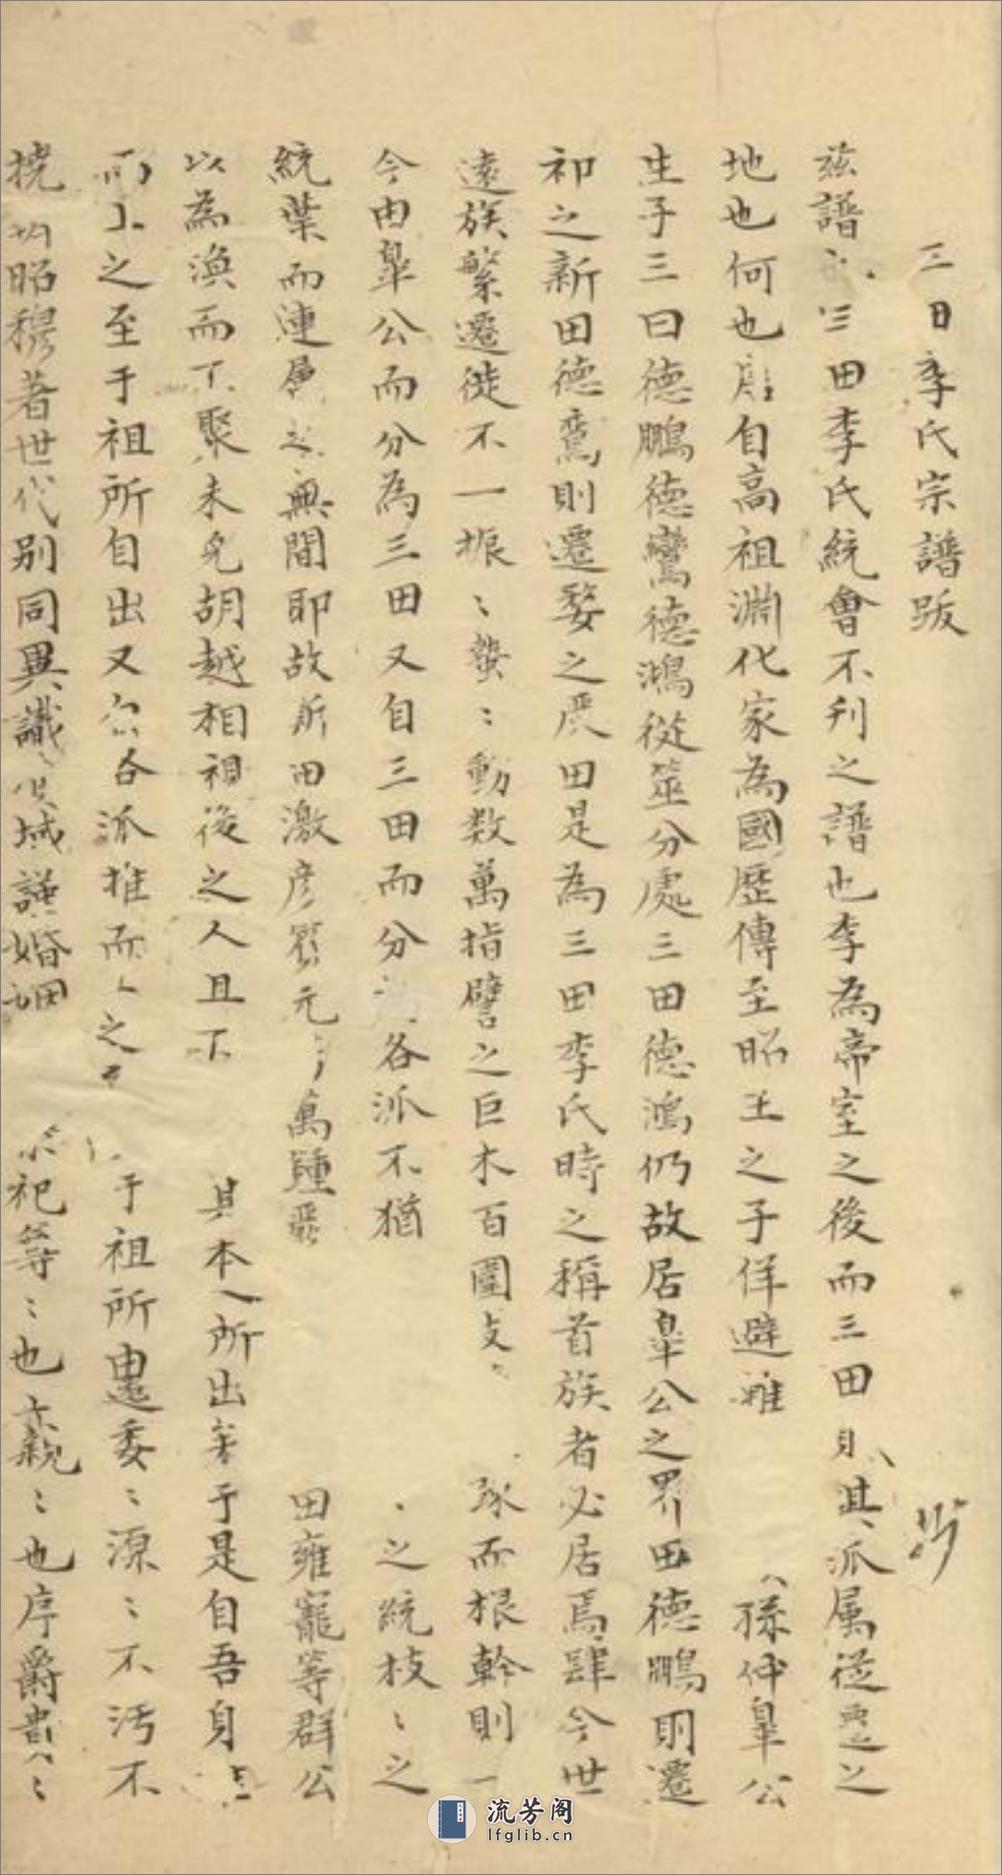 三田李氏宗譜跋
茲譜 三田李氏統會不刋之譜也李為帝室之後而三田則其派属從遷之
地也何也 自高祖淵化家為國歷傳至昭王之子佯避難 孫仲臯公
生子三曰德鵬德鸞德鴻從筮分處三田德鴻仍故居臯公之界田德鵬則遷
祁之新田德鸞則遷婺之嚴田是為三田李氏時之稱首族者必居焉肆今世
遠族繁遷徙不一振〻蟄〻動数萬指譬之巨木百圍支 而根幹則一
今由臯公而分為三田又自三田而分 各派不猶 之統枝〻之
統葉而連属之無間耶故 田激彦 元 萬鍾 田雍寵等群公
以為渙而不聚未免胡越相視後之人且不 其本 所出 于是自吾身
而上之至于祖所自出又 各派推而 之 于祖所 委〻源〻不汚不
撓 昭穆著世代別同異識 域謹婚姻 祀等〻也 親〻也序爵貴〻
流芳阁
lfglib.cn